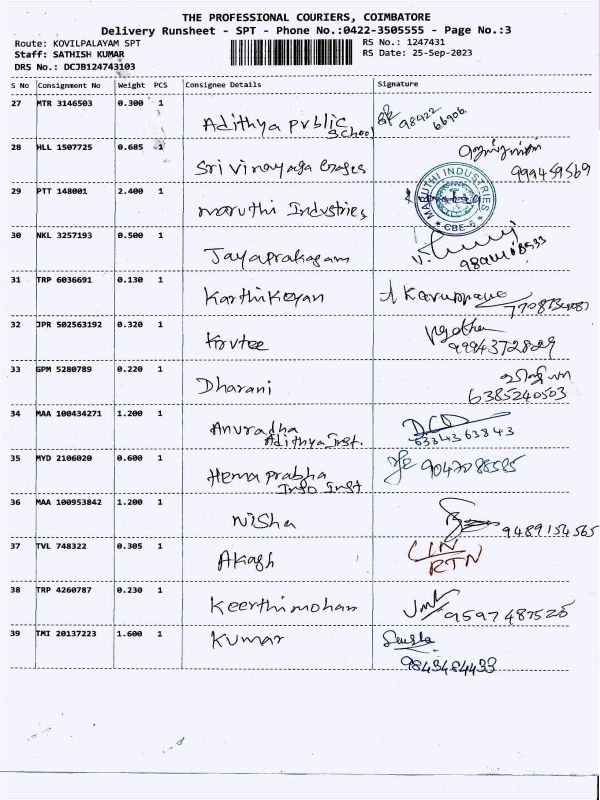 THE PROFESSIONAL COURIERS, COIMBATORE
Delivery Runsheet - SPT - Phone No.:0422-3505555 - Page No.:3
Route: KOVILPALAYAM SPT
RS No.: 1247431
Staff: SATHISH KUMAR
RS Date: 25-Sep-2023
DRS No.: DCJB124743103
S No Consignment No Weight PCS Consignee Details Signature
27 MTR 3146503 0.300 1
Adithya Public School 98422 66906
28 HLL 1507725 0.685 1
Sri Vinayaga 999459569
29 PTT 148001 2.400 1
Maruthi Industries MARUTHI INDUSTRIES * CBE-6 *
30 NKL 3257193 0.500 1
Jayaprakasam
31 TRP 6036691 0.130 1
Karthikeyan
32 JPR 502563192 0.320 1
9994372829
33 GPM 5280789 0.220 1
Dharani 6385240503
34 MAA 100434271 1.200 1
Anuradha
Adithya Inst. 6334363843
35 MYD 2106020 0.600 1
Hema prabha 9047088585
Info Inst
36 MAA 100953842 1.200 1
Nisha 9489154565
37 TVL 748322 0.305 1
Akash RTN
38 TRP 4260787 0.230 1
Keerthi mohan 9597487528
39 TMI 20137223 1.600 1
Kumar
9843484433